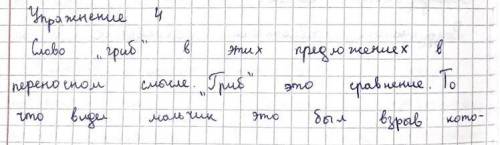 Упражнение 4
Слово „гриб" в этих предложениех в
переносном смысле. „Гриб" это сравнение. То
что видел мальчик это был взрыв кото-